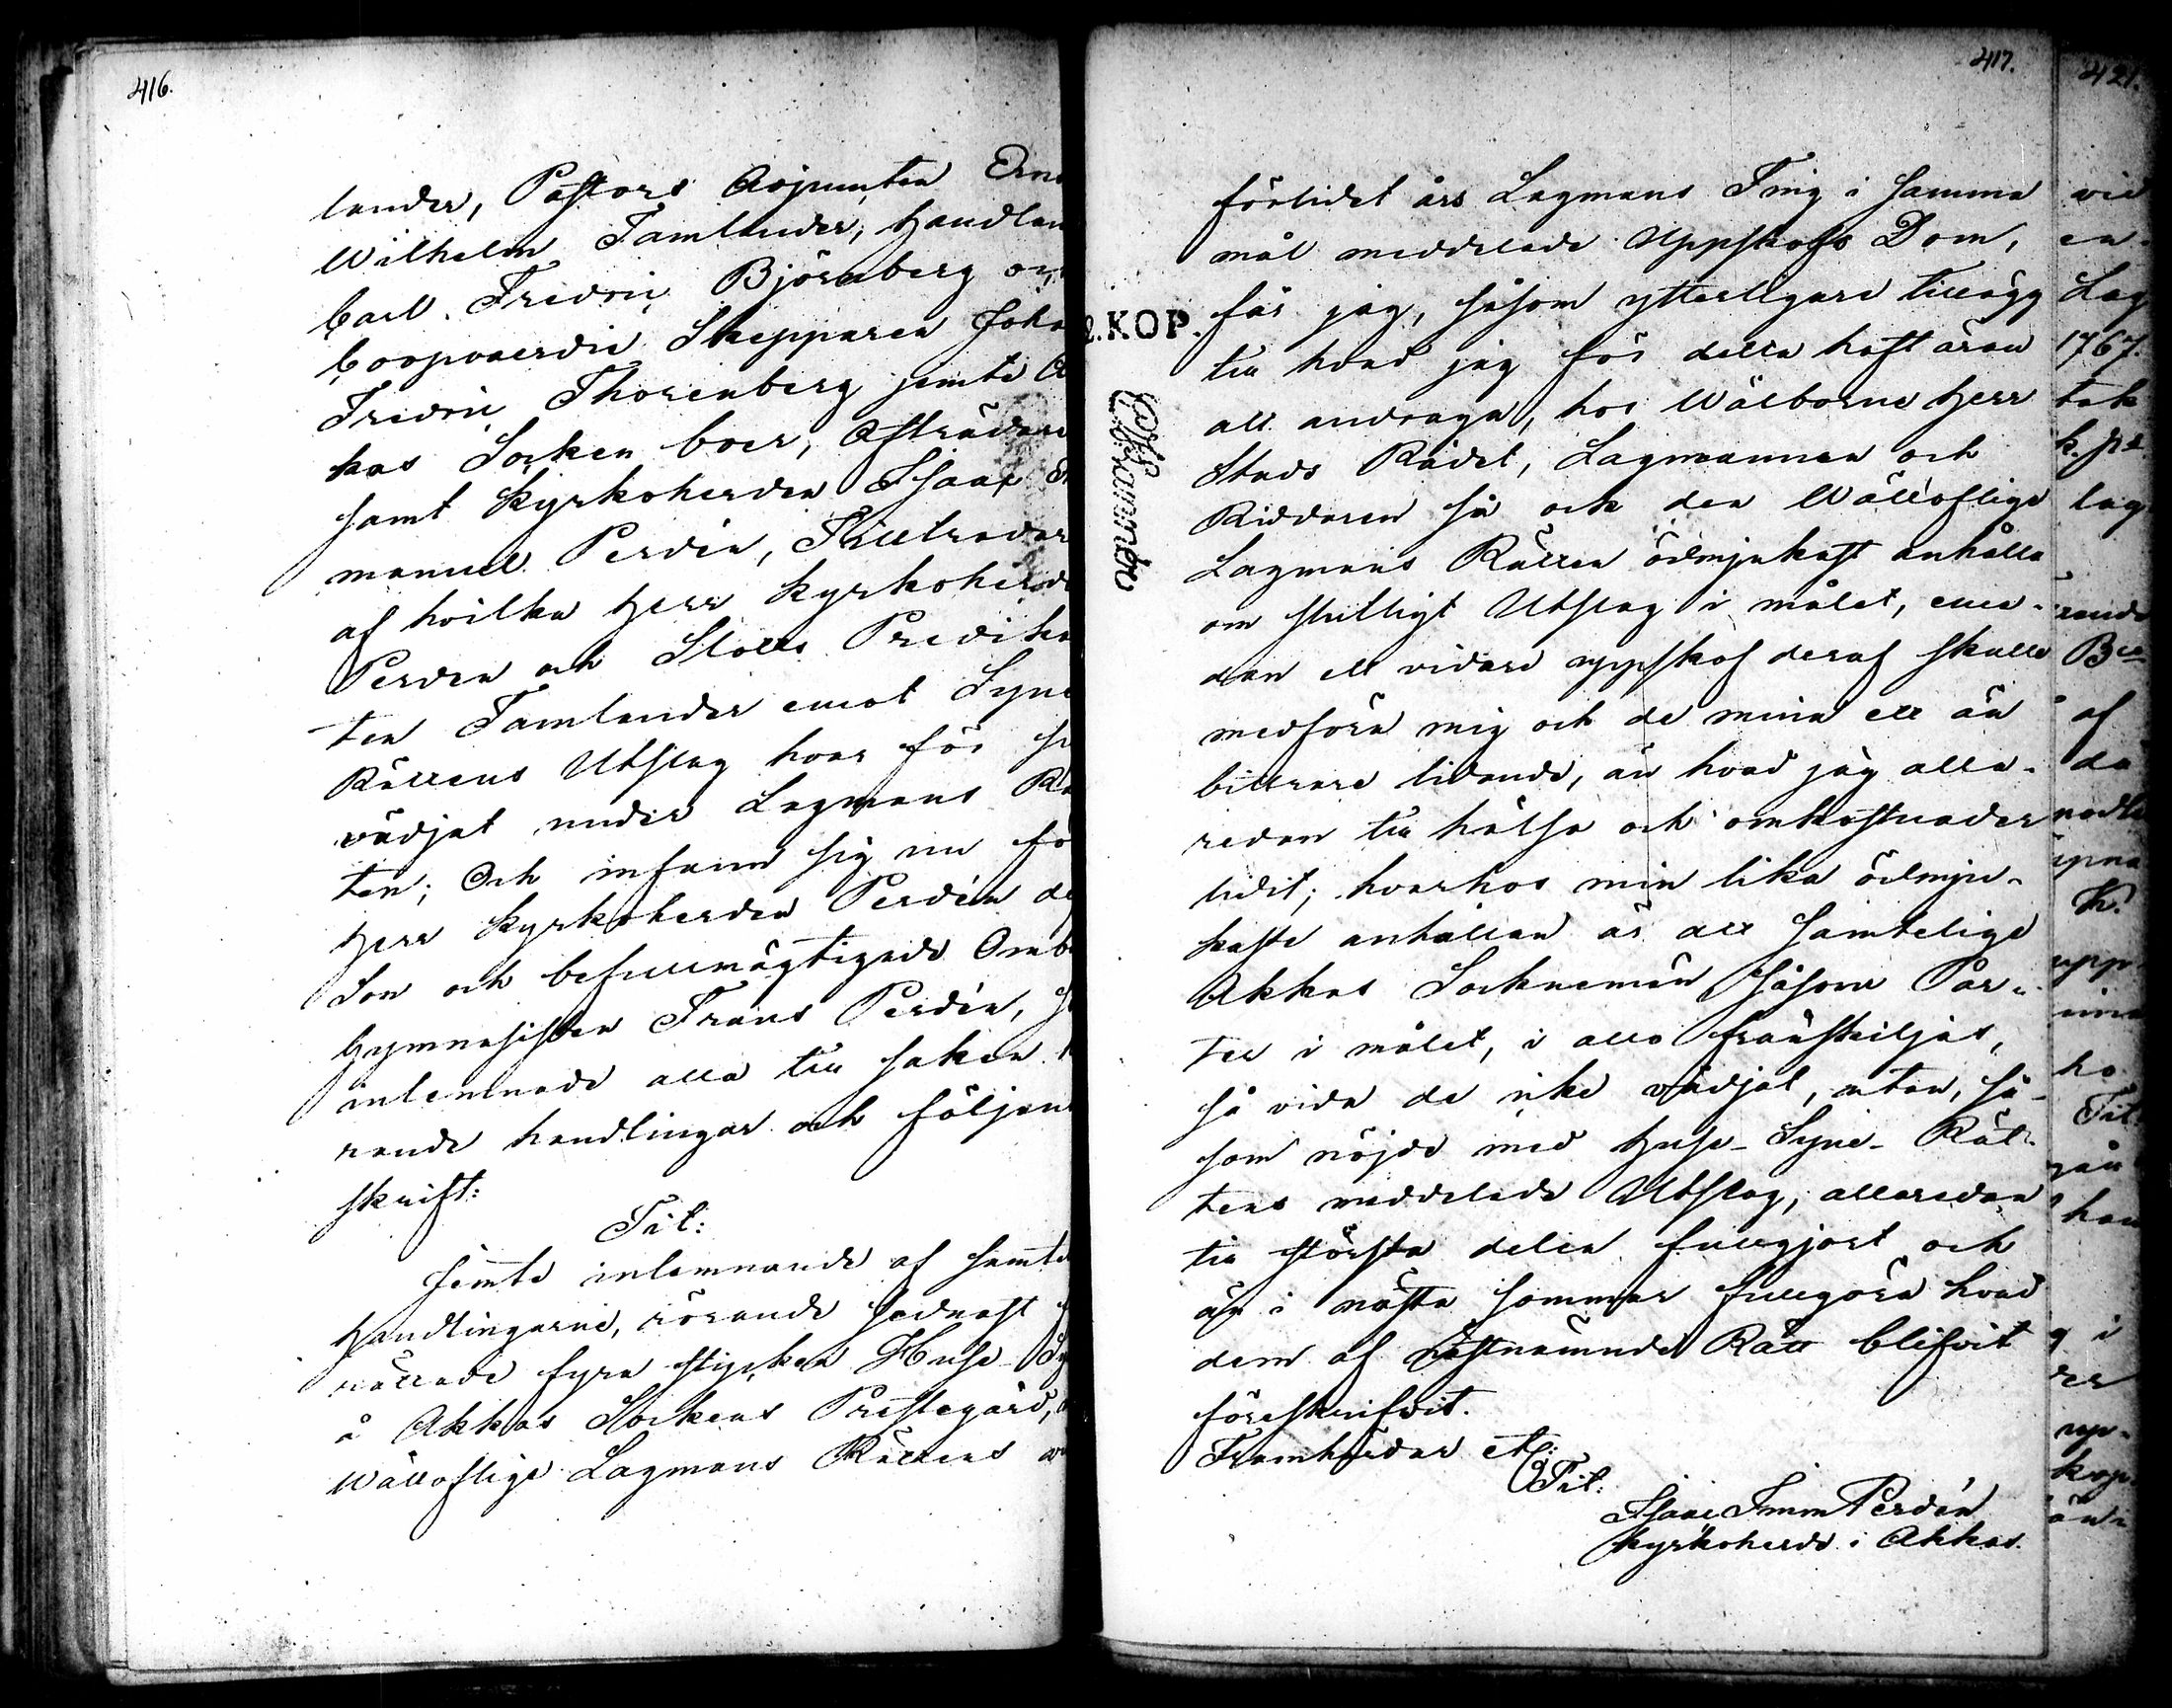 416.
lander, Pastors Adjuncten Ern
Wilhelm Tamlander, Handlan
Carl Fredric Björnberg oc
Coopvaerdie Skepparen Joha
Fredric Thorenberg jemte A
kas Socken boer, Afträdare
samt Kyrkoherden Isaac E
manuel Perdén, Tillträdar
af hvilka Herr Kyrkoherde
Perden och Slotts Predika
ten Tamlander emot Syne
Rättens Utslag hvar för si
vädjat under Lagmans Rä
ten; Och infann sig nu fö
Herr Kyrkoherden Perdén de
Son och befullmägtigade Omb
Gymnasisten Frans Perdén, s
inlemnade alla till saken h
rande handlingar och följan
skrift:
Tit:
Jemte inlemnande af samte
Handlingarne, rörande sednast f
rättade fyra stycken Huse Sy
å Akkas Sockens Prestegård,
Wällofliga Lagmans Rättens
417.
förlidet års Lagmans Ting i samma
mål meddelade Uppskofs Dom,
får jag, såsom ytterligare tillägg
till hvad jag för detta haft äran
att andraga, hos Wälborne Herr
Stads Rådet, Lagmannen och
Riddaren så och den Wällofliga
Lagmans Rätten ödmjukast anhålla
om slutligt Utslag i målet, eme-
dan ett vidare uppskof deraf skulle
medföra mig och de mina ett än
bittrare lidande, än hvad jag alla-
redan till hälsa och omkostnader
lidit; hvarhos min lika ödmju-
kaste anhållan är att samtelige
Akkas Sockneman såsom Par-
ter i målet, i allo frånskiljas,
så vida de icke vädjat, utan, så-
som nöjde med Huse-Syne-Rät-
tens meddelade Utslag, allaredan
till största delen fullgjort och
än i nästa sommar fullgöra hvad
dem af nästnämnde Rätt blifvit
föreskrifvit.
Framhärdar etc:
Tit:
Isaac Imm Perdén
Kyrkoherde i Akkas.
2.KOP.
421.
vid
en
Lag
1767.
tak
lag
rande
af
da
upp
ho
Tit
han